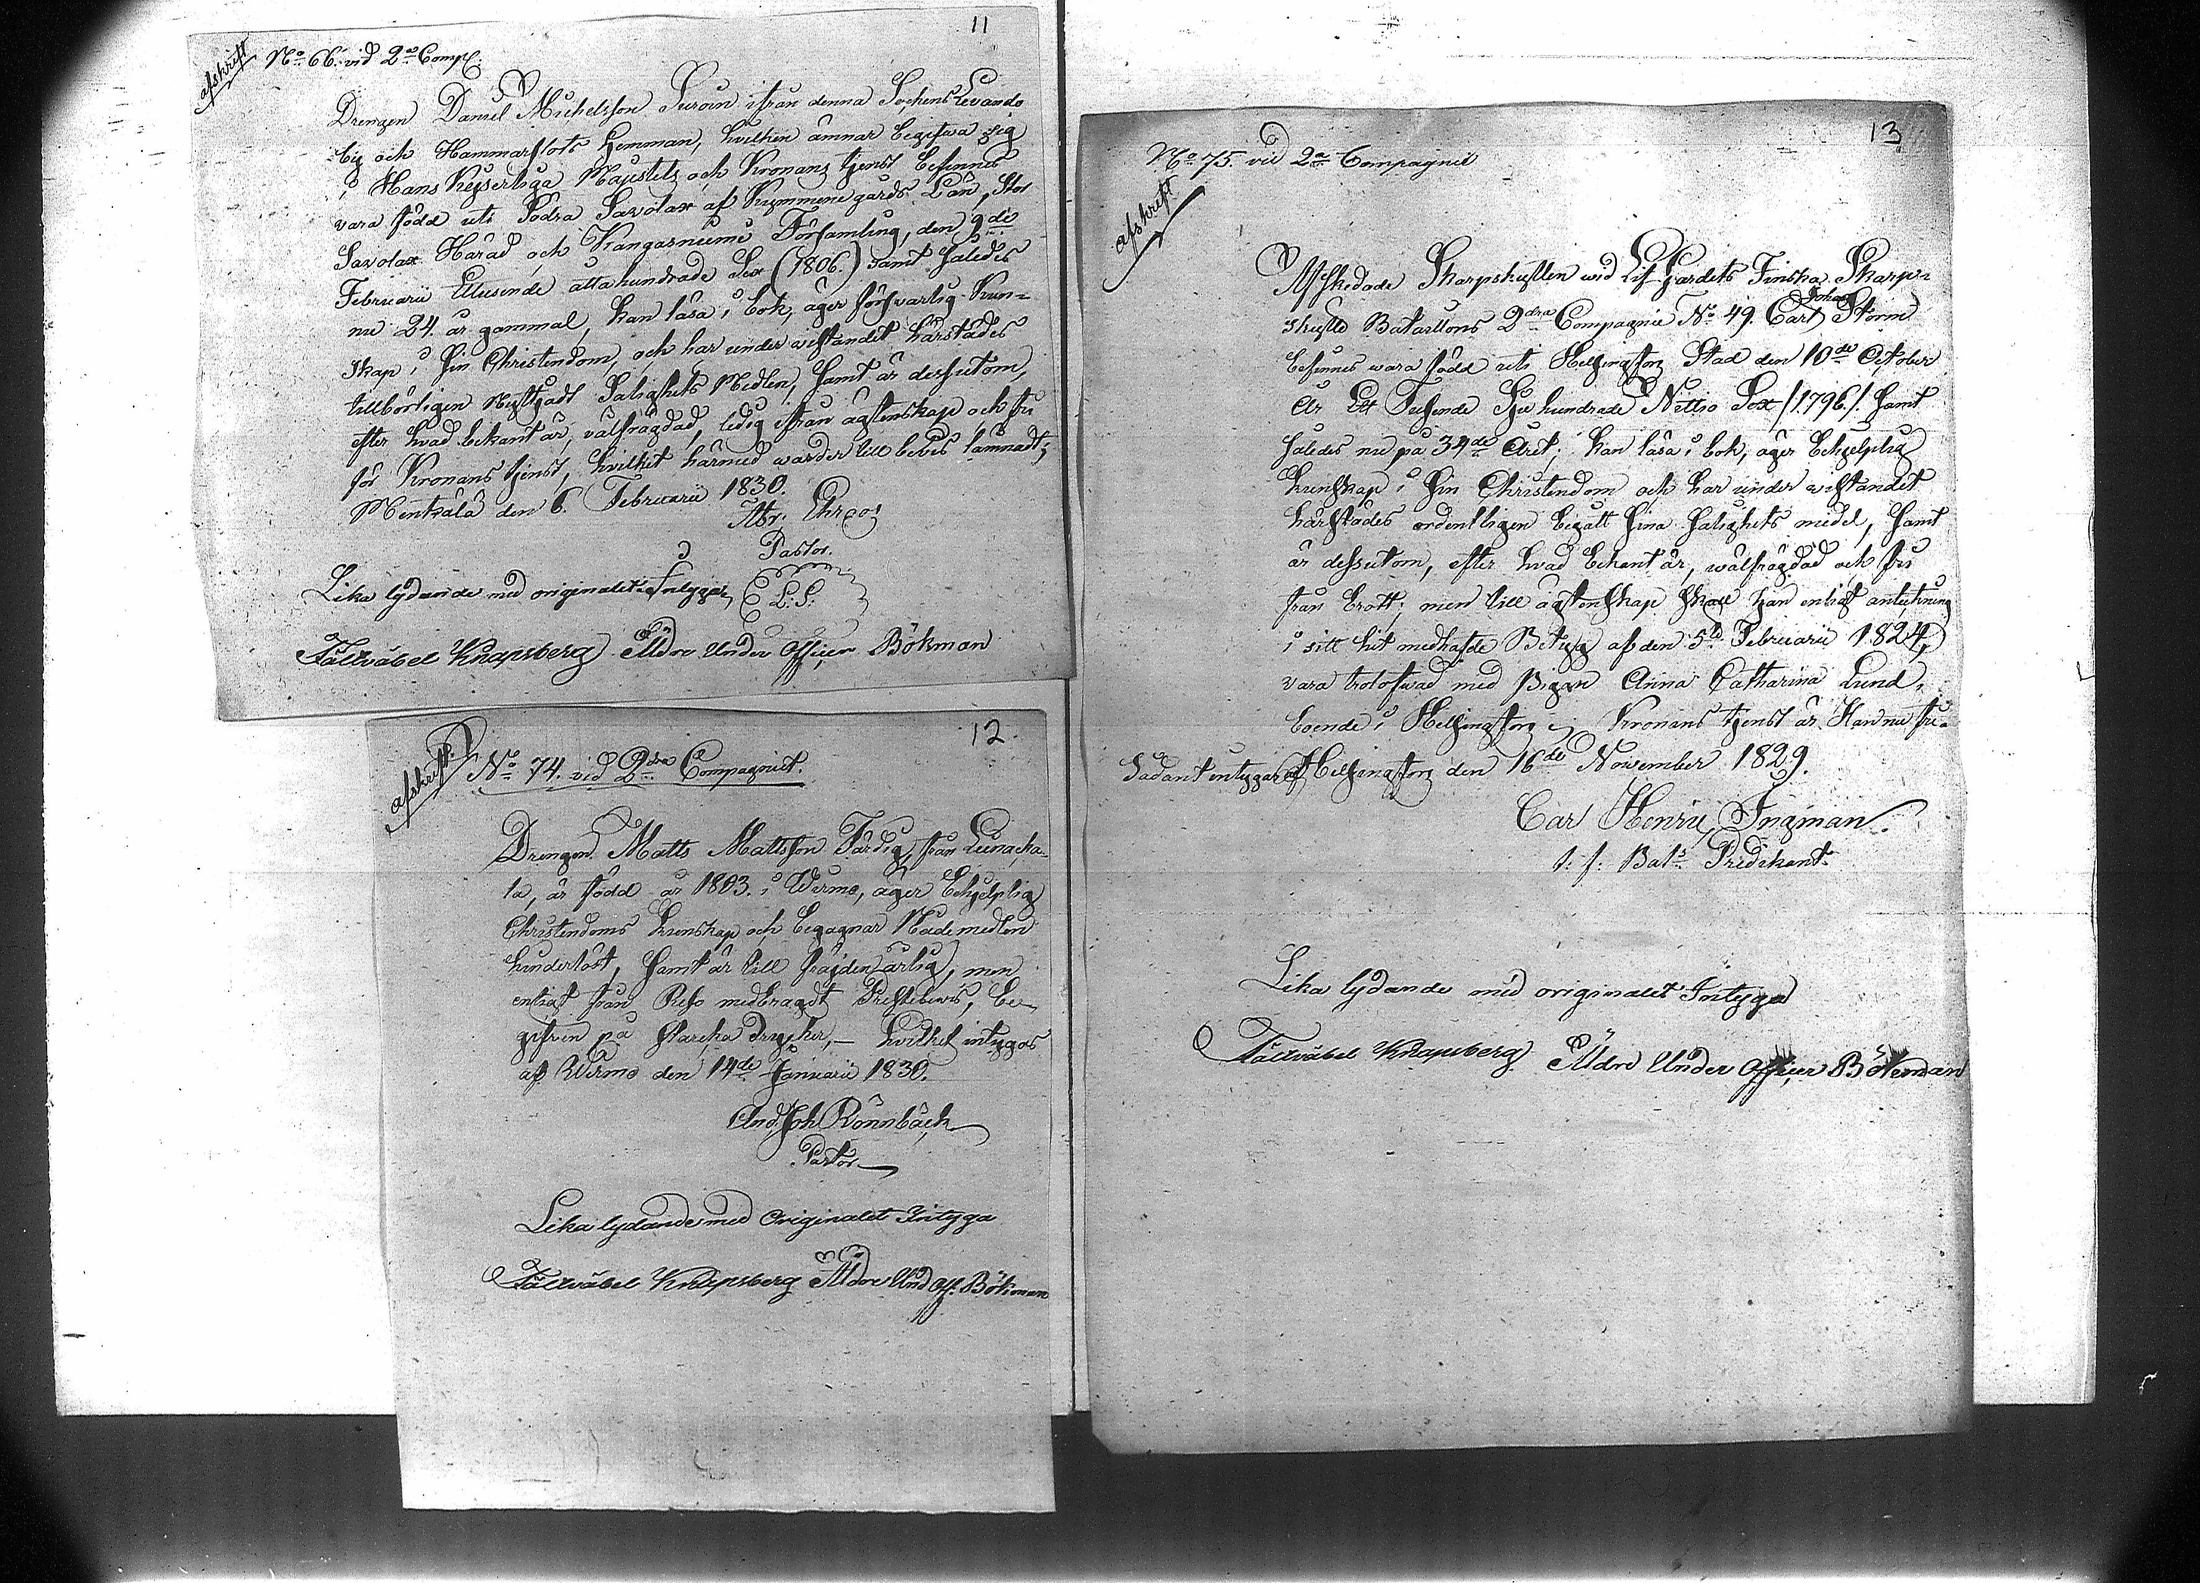 11
afskrift
No 66. vid 2a Comp.
Drengen Daniel Michelsson Suroin ifrån denna Sochens Levando
by och Hammarslots Hemman, hvilken ämnar begifwa sig
i Hans Kejserliga Majestets och Kronans tjenst befinnes
vara född uti Södra Savolax af Kymmenegårds Län, Stor
Savolax Härad och Kangasniemi Församling, den 9de
Februarii Ettusende åttahundrade Sex (1806.) samt således
nu 24. år gammal, kan läsa i bok, äger försvarlig Kun-
skap i sin Christendom, och har under wistandet härstädes
tillbörligen nyttjadt Salighets Medlen, samt är dessutom,
efter hvad bekant är, välfrägdad, ledig ifrån ägtenskap och fri
för Kronans tjenst, hvilket härmed warder till bevis lämnadt;
Mentälä den 6. Februarii 1830.
Abr.
Pastor.
L.S.
Lika lydande med originalet Intygar
Fältväbel Knapsberg Äldre Under Officer Bökman
12.
afskrift
No 74. vid 2dra Compagniet.
Drengen Matts Mattsson Färdig, från
la, är född år 1803. i Wirmo, äger behjelplig
Christendoms kunskap och begagnar Nådemedlen
hinderlöst, samt är till fräjden ärlig, men
enligt från Reso medbragdt Prestbewis, be-
gifven på starcka drycker, – hvilket intygas
af Wirmo den 14de Januarii 1830.
And. Joh Rönnbäck
Pastor
Lika lydande med Originalet Intyga
Fältväbel Knapsberg Äldre Und Off. Bökman
13
No 75. vid 2a Compagniet
afskrift
Afskedade Skarpskytten wid Lif Gardets Finska Skarp-
skytte Bataillons 2dra Compagnie No 49. Carl Johan Storm
befinnes wara född uti Helsingfors Stad den 10de October
År Ett Tusende Sju hundrade Nittio Sex /:1796:/. samt
således nu på 34de Året; kan läsa i bok, äger behjelplig
kunskap i sin Christendom och har under wistandet
härstädes ordentligen begått sina salighets medel, samt
är dessutom, efter hvad bekant är, wälfrägdad och fri
från brott; men till ägtenskap skall han enligt anteckning
i sitt hit medhafde Betyg af den 5te Februarii 1824,
vara trolofwad med pigan Anna Catharina Lund,
boende i Helsingfors; Kronans tjenst är Han nu fri.
Sådant intygar af Helsingfors den 16de November 1829.
Carl Henric Ingman.
t. f. Bats Predikant.
Lika lydande med originalet Intyga
Fältväbel Knapsberg Äldre Under Officer Bökman